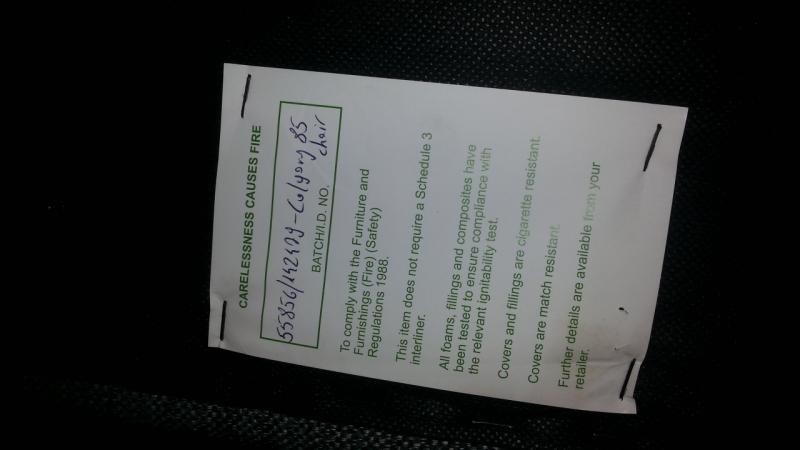 CARELESSNESS CAUSES FIRE
chair
BATCH/I.D. NO.
To comply with the Furniture and
Furnishings (Fire) (Safety)
Regulations 1988.
This item does not require a Schedule 3
interliner.
All foams, fillings and composites have
been tested to ensure compliance with
the relevant ignitability test.
Covers and fillings are cigarette resistant.
Covers are match resistant.
Further details are available from your
retailer.